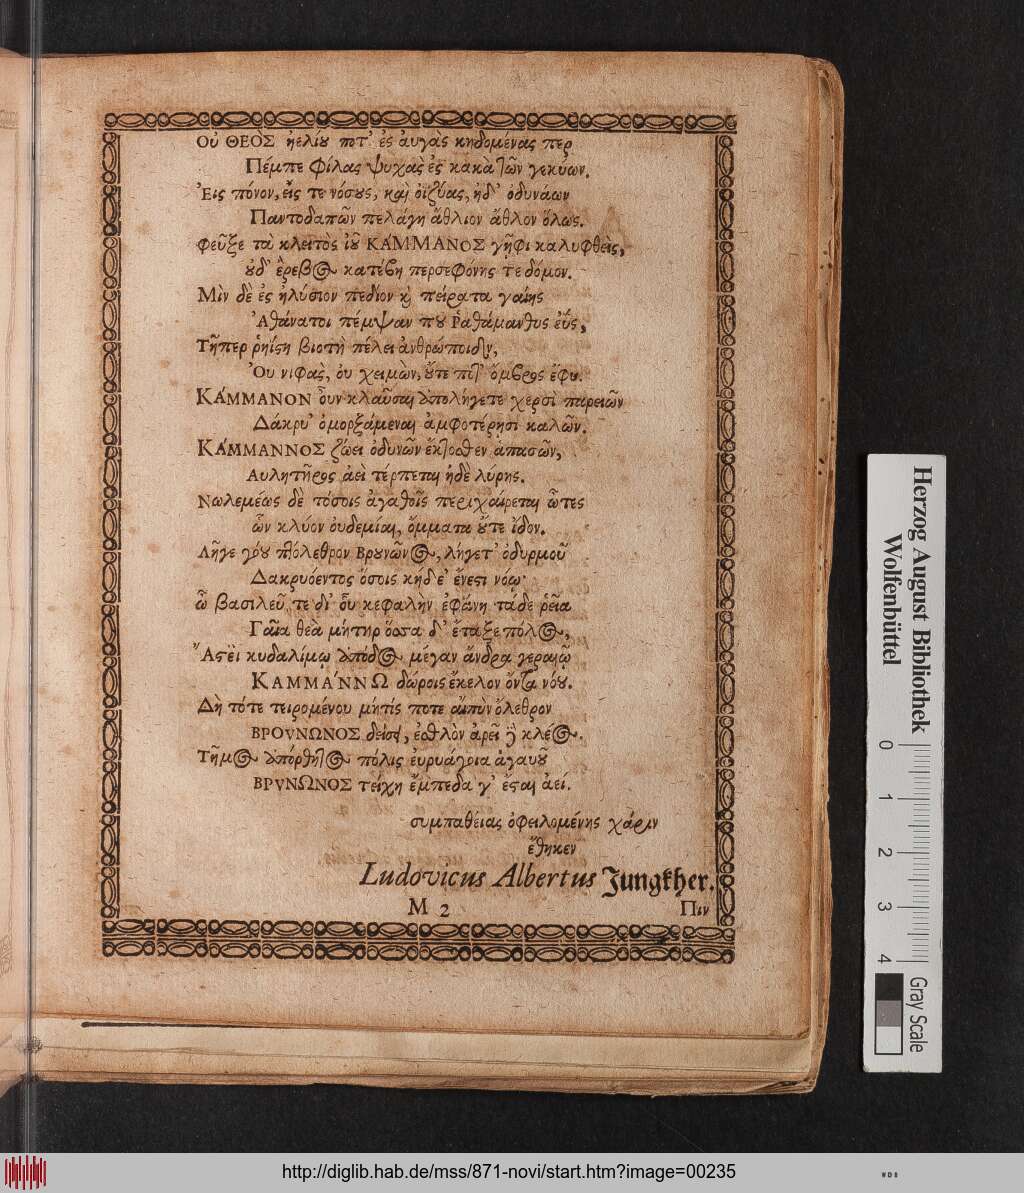 Οὐ ΘΕΟΣ ἠελίου ποτ' ἐς ἀυγὰς κηδομένας περ
Πέμπε φίλας ψυχὰς ἐς κακὰ τῶν γεκύων.
Ἐις πόνον, εἶς τε νόσους, καὶ ὀϊζύας, ἠδ' ὀδυνάων
Παντοδαπῶν πελάγη ἄθλιον ἄθλον ὅλως.
Φεῦξε τὰ κλειτὸς ἰοῦ ΚΑΜΜΑΝΟΣ γῆφι καλυφθεὶς,
ουδ' ἔρεβος κατέβη περσεφόνης τε δόμον.
Μὶν δὲ ἐς ἠλύσιον πεδίον καὶ πείρατα γαίης
Ἀθάνατοι πέμψαν που Ῥαθάμανθυς ἐΰς,
Τῆπερ ῥηίςη βιοτὴ πέλει ἀνθρώποισιν,
Ὀυ νιφὰς, ὀυ χειμὼν, οὔτε ποτ' ὄμβρος ἔφυ.
ΚΑΜΜΑΝΟΝ οὖν κλαῦσαι ἀπολήγετε χερσὶ παρειῶν
Δάκρυ' ὀμορξάμεναι ἀμφοτέρῃσι καλῶν.
ΚΑΜΜΑΝΝΟΣ ζώει ὀδυνῶν ἔκτοσθεν ἁπασῶν,
Αυλητῆρος ἀεὶ τέρπεται ἠδὲ λύρης.
Νωλεμέως δὲ τόσοις ἀγαθοῖς περιχαίρεται ὦτες
ὧν κλύον ὀυδεμίαι, ὄμματα οὔτε ἴδον.
Λῆγε γόου πτόλεθρον Βρουνῶνος, λήγετ' ὀδυρμοῦ
Δακρυόεντος ὅσοις κήδε' ἔνεςι νόῳ·
ὦ βασιλεῦ, τε δι' οὗ κεφαλὴν ἐφάνη τάδε ῥεῖα
Γαῖα θεὰ μήτηρ ὅσσα δ' ἔταξε πόλος,
Ἄςεϊ κυδαλίμῳ ἀπόδος μέγαν ἄνδρα γεραιῷ
ΚΑΜΜΑΝΝΩ δώροις ἔκελον ὄντα νόου.
Δὴ τότε τειρομένου μήτίς ποτε αἰπὺν ὄλεθρον
ΒΡΟΥΝΩΝΟΣ δείσῃ, ἐσθλὸν ἀρεῖ γὰρ κλέος.
Τῆμος ἀπόρθητος πόλις ἐυρυάγυια ἀγαυοῦ
ΒΡΥΝΩΝΟΣ τείχη ἔμπεδα γ' ἔςαι ἀεί.
συμπαθείας ὀφειλομένης χάριν
ἔθηκεν
Ludovicus Albertus Jungkher.
M 2
Πιν
Herzog August Bibliothek
Wolfenbüttel
0 1 2 3 4
Gray Scale
http://diglib.hab.de/mss/871-novi/start.htm?image=00235
WDB